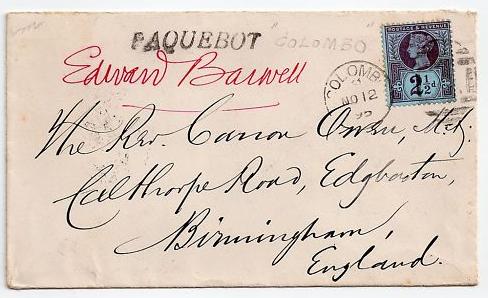 PAQUEBOT "COLOMBO"
Edward Barwell
POSTAGE & REVENUE
2½d
COLOMBO
NO 12
95
The Rev. Canon Owen, M.A.
Calthorpe Road, Edgbaston,
Birmingham,
England.